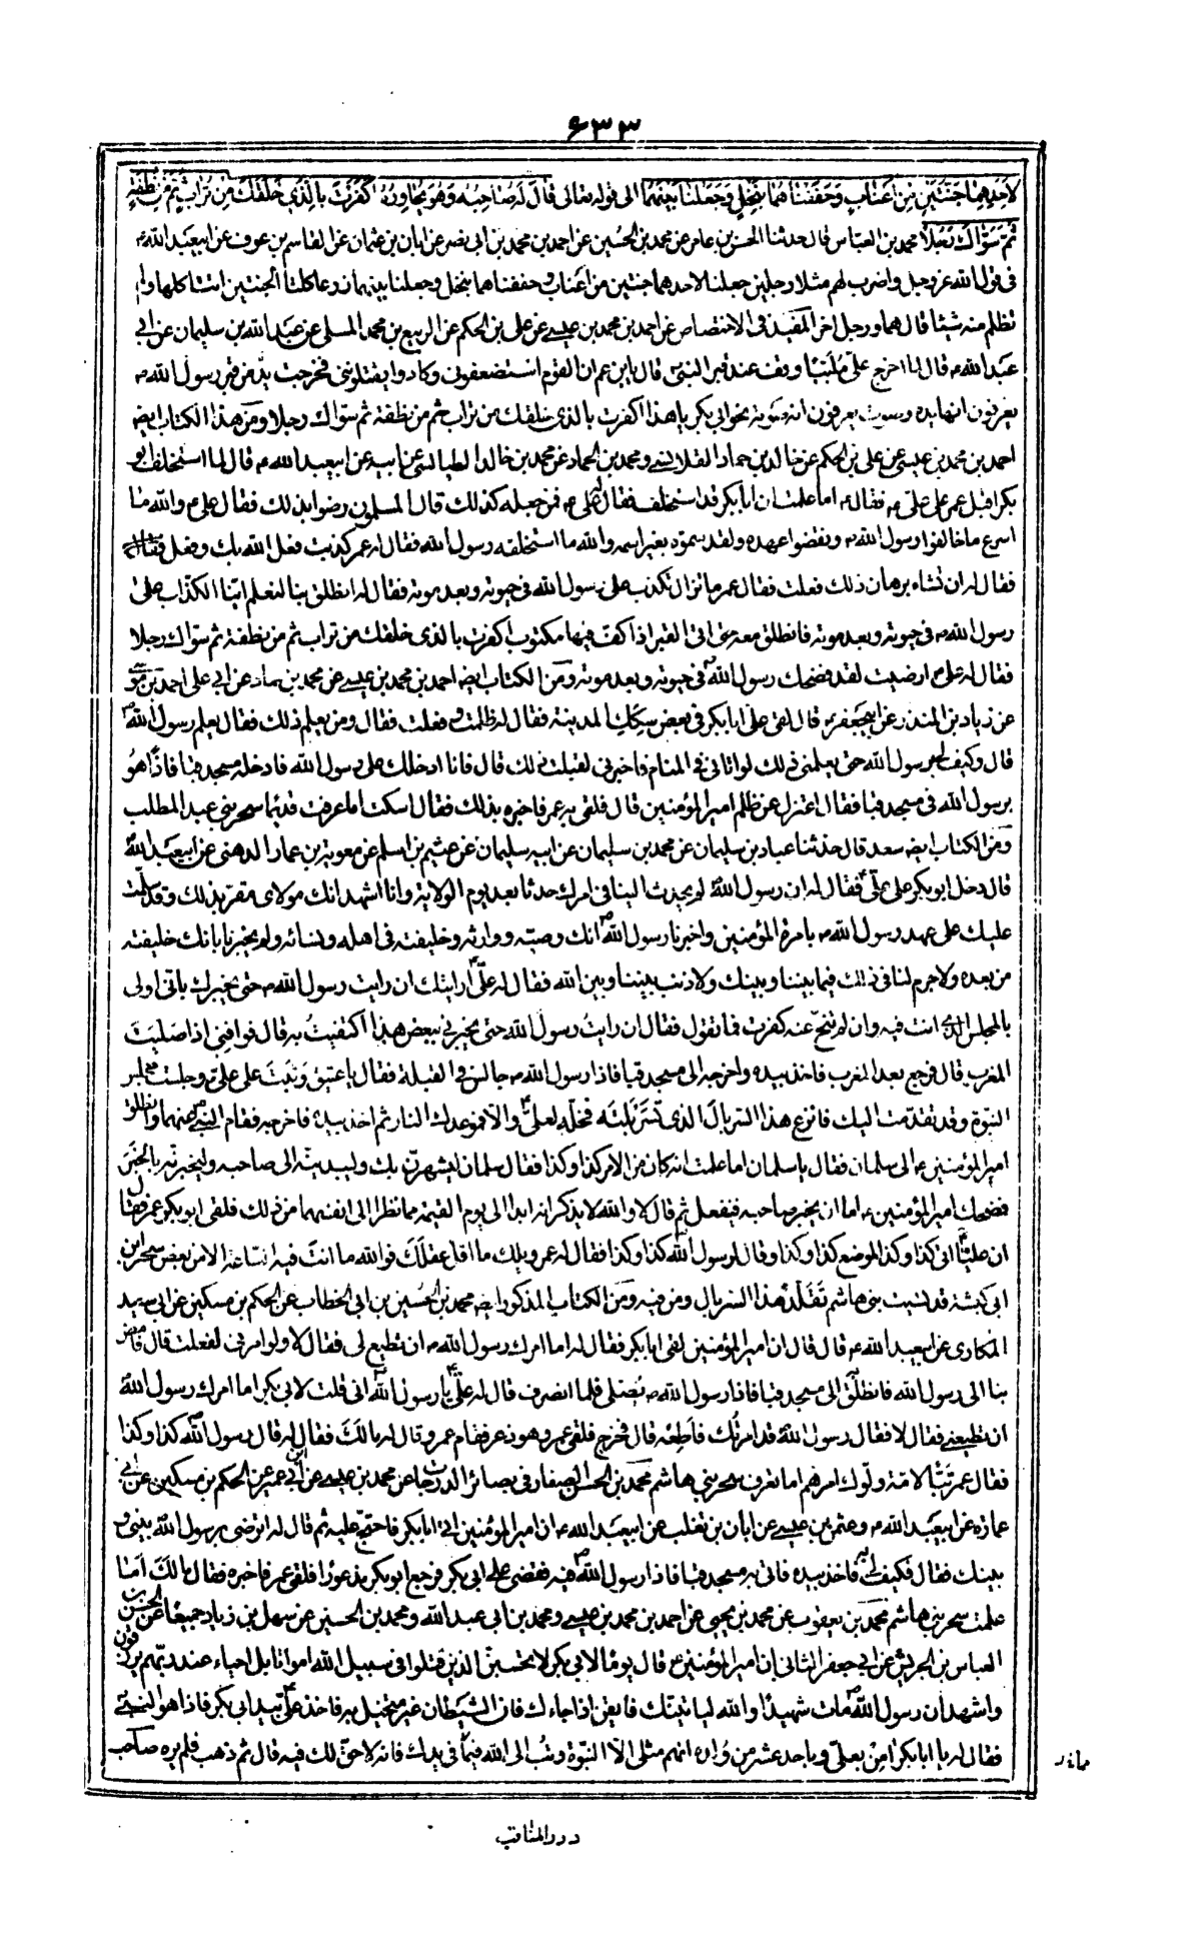 ۶۳۳
لاحدهما جنتين من اعناب وحففناهما بنخل وجعلنا بينهما الى قوله تعالى قال له صاحبه وهو يحاوره اكفرت بالذي خلقك من تراب ثم من نطفة
ثم سواك رجلا محمد بن العباس قال حدثنا الحسين بن عامر عن محمد بن الحسين عن احمد بن محمد بن ابى نصر عن ابان بن عثمان عن القاسم بن عوف عن ابيعبد الله ع
فى قول الله عز وجل واضرب لهم مثلا رجلين جعلنا لاحدهما جنتين من اعناب وحففناهما بنخل وجعلنا بينهما زرعا كلتا الجنتين اتت اكلها ولم
تظلم منه شيئا قال هما ورجل اخر المفيد فى الاختصاص عن احمد بن محمد بن عيسى عن على بن الحكم عن الربيع بن محمد المسلى عن عبد الله بن سليمان عن ابي
عبد الله ع قال لما اخرج على ملببا وقف عند قبر النبى ص قال يابن عم ان القوم استضعفونى وكادوا يقتلوننى فخرجت يد من قبر رسول الله ص
يعرفون انها يده وصوت يعرفون انه صوته نحو ابى بكر يا هذا اكفرت بالذى خلقك من تراب ثم من نطفة ثم سواك رجلا ومن هذا الكتاب ايضه
احمد بن محمد بن عيسى عن على بن الحكم عن خالد بن حماد القلانسى ومحمد بن الحماد عن محمد بن خالد الطيالسى عن ابيه عن ابيعبد الله ع قال لما استخلف ابو
بكر اقبل عمر على على ع فقال ع اما علمت ان ابا بكر قد استخلف فقال على ع فمن جعله كذلك قال المسلمون رضوا بذلك فقال على ع والله ما
اسرع ما خالفوا رسول الله ص ونقضوا عهده ولقد سموه بغير اسمه والله ما استخلفه رسول الله فقال له عمر كذبت فعل الله بك وفعل
فقال له ان تشاء برهان ذلك فعلت فقال عمر ما تزال تكذب على رسول الله فى حيوته وبعد موته فقال له انطلق بنا لنعلم اينا الكذاب على
رسول الله ص فى حيوته وبعد موته فانطلق معه حتى اتى القبر اذا كف فيها مكتوب اكفرت بالذى خلقك من تراب ثم من نطفة ثم سواك رجلا
فقال له على ع ارضيت لقد فضحك رسول الله ص فى حيوته وبعد موته ومن الكتاب ايضه احمد بن محمد بن عيسى عن محمد بن حماد عن ابي على احمد بن موسى
عن زياد بن المنذر عن ابيجعفر ع قال لقى على ابا بكر فى بعض سكك المدينة فقال له ظلمت وفعلت فقال ومن يعلم ذلك فقال يعلم رسول الله ص
قال وكيف لى برسول الله حتى يعلمنى ذلك لو اتانى فى المنام فاخبرنى لقبلت ذلك قال فانا ادخلك على رسول الله فادخله مسجد قبا فاذا هو
برسول الله فى مسجد قبا فقال اعتزل عن ظلم امير المؤمنين قال فلقى به عمر فاخبره بذلك فقال اسكت اما عرفت قديما سحر بنى عبد المطلب
ومن الكتاب ايضه سعد قال حدثنا عباد بن سليمان عن محمد بن سليمان عن ابيه سليمان عن عثيم بن اسلم عن معوية بن عمار الدهنى عن ابيعبد الله
قال دخل ابو بكر على على ع فقال له ان رسول الله لم يحدث الينا فى امرك حدثا بعد يوم الولاية وانا اشهد انك مولاى مقر بذلك وقد سلمت
عليك على عهد رسول الله ص بامرة المؤمنين واخبرنا رسول الله ص انك وصيه ووارثه وخليفته فى اهله ونسائه ولم يخبرنا بانك خليفته
من بعده ولا جرم لنا فى ذلك فيما بيننا وبينك ولا ذنب بيننا وبين الله فقال له على ع ارايتك ان رايت رسول الله ص حتى يخبرك بانى اولى
بالمجلس الذى انت فيه وان لم تنح عنه كفرت فما تقول فقال ان رايت رسول الله حتى يخبرنى ببعض هذا اكتفيت به قال فوافنى اذا صليت
المغرب قال فرجع بعد المغرب فاخذ بيده واخرجه الى مسجد قبا فاذا رسول الله ص جالس فى القبلة فقال يا عتيق وثبت على على وجلست مجلس
النبوة وقد تقدمت اليك فانزع هذا السربال الذى تسربلته فخله لعلى ع والا فموعدك النار ثم اخذ بيده فاخرجه فقام النبى ص عنهما وانطلق
امير المؤمنين ع الى سلمان فقال يا سلمان اما علمت انه كان من الامر كذا وكذا فقال سلمان ليشهرن بك وليبدينه الى صاحبه وليخبرنه بالخبر
فضحك امير المؤمنين ع اما ان يخبر صاحبه فيفعل ثم قال لا والله لا يذكرانه ابدا الى يوم القيمة هما انظرا الى انفسهما من ذلك فلقى ابو بكر عمر فقال
ان عليا ع اتى كذا وكذا لموضع كذا وكذا وقال لرسول الله كذا وكذا فقال له عمر ويلك ما اقل عقلك فوالله ما انت فيه الساعة الا من بعض سحر ابن
ابى كبشة قد نسيت بنى هاشم تقلد هذا السربال ومن فيه ومن الكتاب المذكور ايضه محمد بن الحسين بن ابى الخطاب عن الحكم بن مسكين عن ابى سعيد
المكارى عن ابيعبد الله ع قال قال ان امير المؤمنين لقى ابا بكر فقال له اما امرك رسول الله ص ان تطيع لى فقال لا ولو امرنى لفعلت قال فامض
بنا الى رسول الله فانطلق الى مسجد قبا فاذا رسول الله ص يصلى فلما انصرف قال له على ع يا رسول الله انى قلت لابى بكر اما امرك رسول الله
ان تطيعنى فقال لا فقال رسول الله قد امرتك فاطعه قال فخرج فلقى عمر وهو ذعر فقام عمر وقال له مالك فقال له قال رسول الله كذا وكذا
فقال عمر تبا لامة ولوك امرهم اما تعرف سحر بنى هاشم محمد بن الحسن الصفار فى بصائر الدرجات عن محمد بن عيسى عن ابن ابى عمير عن الحكم بن مسكين عن ابى
عمارة عن ابيعبد الله ع وعثمن بن عيسى عن ابان بن تغلب عن ابيعبد الله ع ان امير المؤمنين لقى ابا بكر فاحتج عليه ثم قال له اترضى برسول الله بينى و
بينك فقال فكيف لى به فاخذ بيده فاتى به مسجد قبا فاذا رسول الله ص فيه فقضى على ابى بكر فرجع ابو بكر مذعورا فلقى عمر فاخبره فقال مالك اما
علمت سحر بنى هاشم محمد بن يعقوب عن محمد بن يحيى عن احمد بن محمد بن عيسى ومحمد بن ابى عبد الله ومحمد بن الحسين عن سهل بن زياد جميعا عن الحسن بن
العباس بن الجريش عن ابى جعفر الثانى ان امير المؤمنين ع قال يوما لابى بكر لا تحسبن الذين قتلوا فى سبيل الله امواتا بل احياء عند ربهم يرزقون
واشهد ان رسول الله ص مات شهيدا والله لياتينك فايقن اذا جاءك فان الشيطان غير متخيل به فاخذ على ع بيد ابى بكر فاذا هو النبى
فقال له يا ابا بكر امن بعلى وباحد عشر من ولده انهم مثلى الا النبوة وتب الى الله فيما فى يدك فانه لا حق لك فيه قال ثم ذهب فلم يره صاحب
درر المناقب